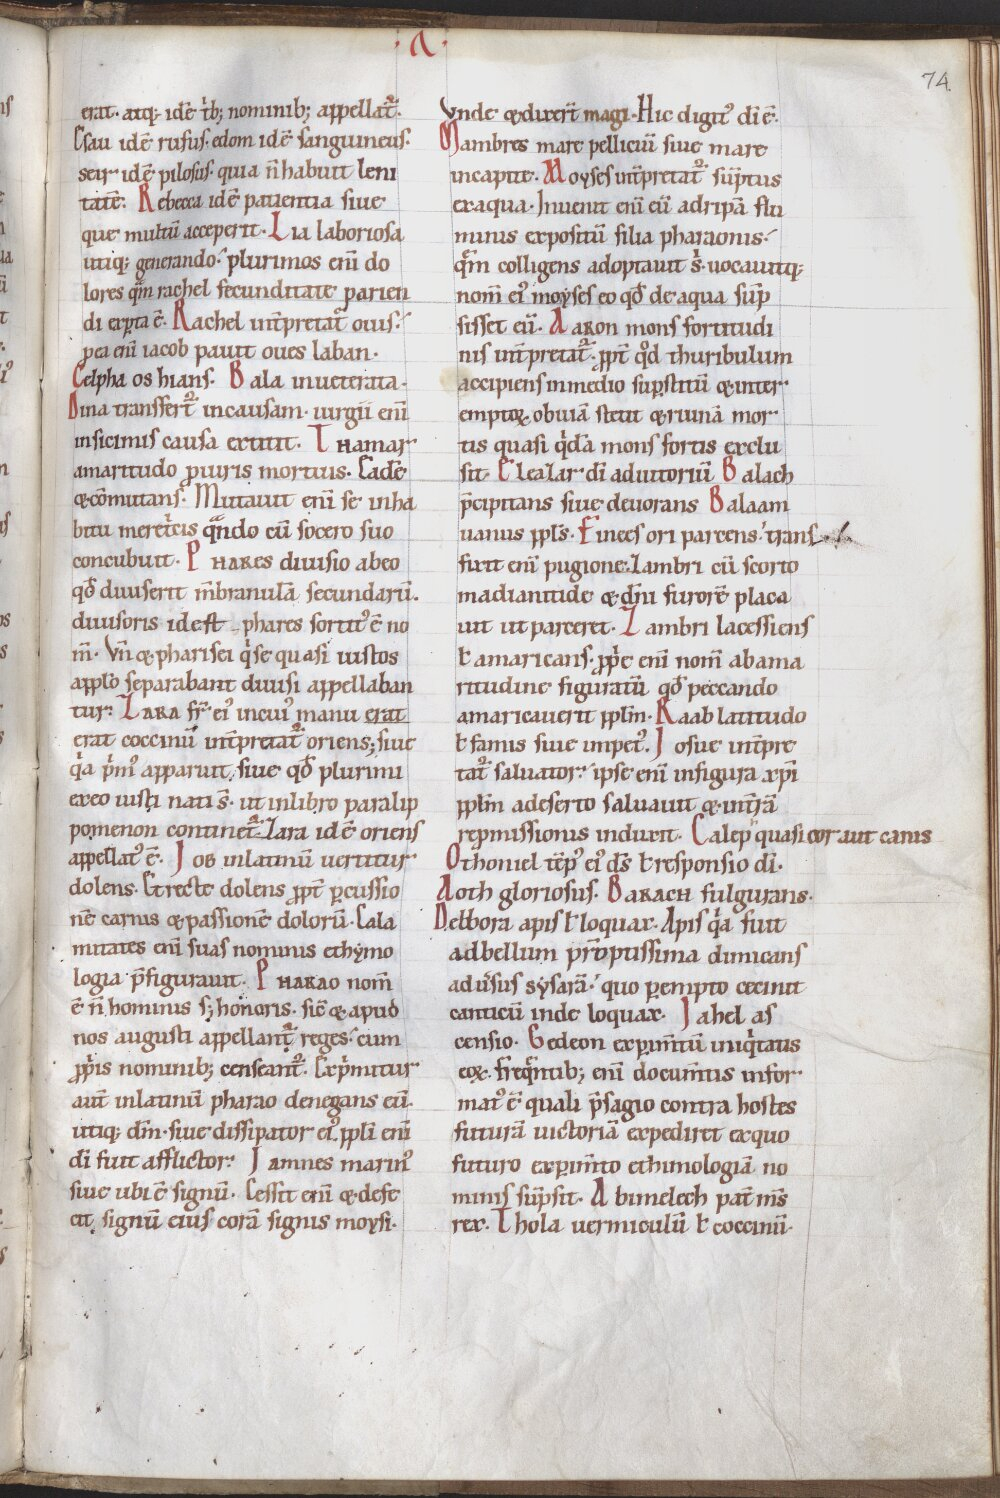 ·A·
74
erat. atq; idē t̄b; nominib; appellat᷑.
Esau idē rufus. edom idē sanguineus.
seir idē pilosus. quia n̄ habuit leni
tatē. Rebecca idē patientia siue
que multū acceperit. Lia laboriosa
utiq; generando. plurimos eni do
lores qm̄ rachel fecunditate parien
di expta ē. Rachel int̄pretat᷑ ouis.
ꝓ ea eni iacob pauit oues laban.
Celpha os hians. Bala inueterata.
Dina transfert᷑ in causam. iurgii eni
in sicimis causa extitit. Thamar
amaritudo ꝓ uiris mortuis. Eadē
& cōmutans. Mutauit eni se in ha
bitu meret̄cis qn̄do cū socero suo
concubuit. Phares diuisio ab eo
qd̄ diuiserit m̄branulā secundarū.
diuisoris id est phares sortit᷒ ē no
m̄. Vn̄ & pharisei q̄ se quasi iustos
a pplo separabant diuisi appellaban
tur. Zara fr̄ ei᷒ in cui᷒ manu erat
erat coccinū int̄pretat᷑ oriens; siue
q̄a p̄m᷒ apparuit, siue qd̄ plurimi
ex eo iusti nati s̄. ut in libro paralip
pomenon continet᷑. Zara idē oriens
appellat᷒ ē. Iob in latinū uertitur
dolens. Et recte dolens ppt̄ ꝑcussio
nē carnis & passionē dolorū. Cala
mitates eni suas nominis ethymo
logia p̄figurauit. Pharao nom̄
ē n̄ hominis s; honoris. sic̄ & apud
nos augusti appellant᷑ reges. cum
ꝓp̄is nominib; censeant᷑. Exp̄mitur
aut̄ in latinū pharao denegans eū.
utiq; dm̄. siue dissipator ei᷒. ppli eni
di fuit afflictor. Iamnes marin᷒
siue ubi ē signū. Cessit eni & defe
cit signū eius corā signis moysi.
Vnde & dixer̄t magi. Hic digit᷒ di ē.
Mambres mare pelliciū siue mare
in capite. Moyses int̄pretat᷑ sūptus
ex aqua. Inuenit eni eū ad ripā flu
minis expositū filia pharaonis.
qm̄ colligens adoptauit s̄. uocauitq;
nom̄ ei᷒ moyses eo qd̄ de aqua sūp
sisset eū. Aaron mons fortitudi
nis int̄pretat᷑. ppt̄ qd̄ thuribulum
accipiens in medio supstitū & inter
emptoꝝ obuiā stetit & ruinā mor
tis quasi q̄dā mons fortis exclu
sit. Eleazar di adiutoriū Balach
p̄cipitans siue deuorans Balaam
uanus ppl̄s. Finees ori parcens. trans
fixit eni pugione Zambri cū scorto
madianitide & dn̄i furorē placa
uit ut parceret. Zambri lacessiens
ł amaricans. ꝓp̄e eni nom̄ ab ama
ritudine figuratū qd̄ peccando
amaricauerit pplm̄. Raab latitudo
ł famis siue impet᷒. Iosue int̄pre
tat᷑ saluator. ipse eni in figura xp̄i
pplm̄ a deserto saluauit & int̄rā
repmissionis induxit. Caleph quasi cor aut canis
Othoniel tēp᷒ ei᷒ ds̄ ł responsio di.
Aoth gloriosus. Barach fulgurans.
Debbora apis ł loquax. Apis q̄a fuit
ad bellum prōptissima dimicans
adūsus sysarā. quo ꝑempto cecinit
canticū inde loquax. Iahel as
censio. Gedeon experim̄tū iniq̄tatis
eoꝝ. freq̄ntib; eni documt̄is infor
mat᷒ ē quali p̄sagio contra hostes
futurā uictoriā expediret ex quo
futuro experim̄to ethimologiā no
minis sūpsit. Abimelech pat̄ m̄s
rex. Thola uermiculū ł coccinū.